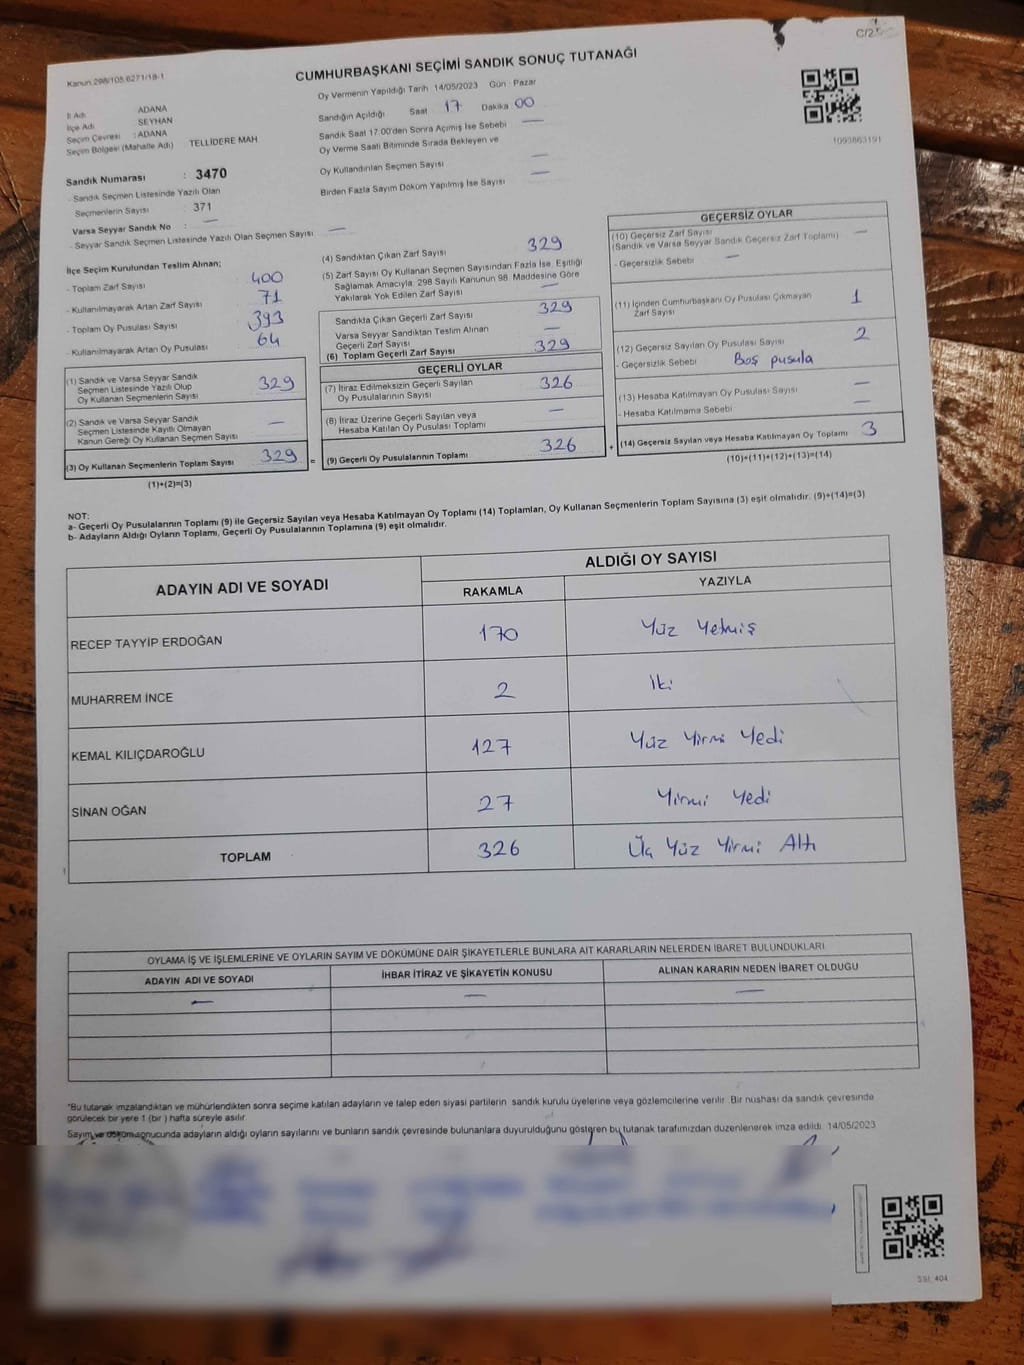 Kanun 298/105 6271/18-1
CUMHURBAŞKANI SEÇİMİ SANDIK SONUÇ TUTANAĞI
C/25
İl Adı : ADANA
İlçe Adı : SEYHAN
Seçim Çevresi : ADANA
Seçim Bölgesi (Mahalle Adı) TELLİDERE MAH
Sandık Numarası : 3470
- Sandık Seçmen Listesinde Yazılı Olan
Seçmenlerin Sayısı : 371
Varsa Seyyar Sandık No : —
- Seyyar Sandık Seçmen Listesinde Yazılı Olan Seçmen Sayısı —
Oy Vermenin Yapıldığı Tarih 14/05/2023 Gün : Pazar
Sandığın Açıldığı Saat 17 Dakika 00
Sandık Saat 17.00'den Sonra Açımış İse Sebebi —
Oy Verme Saati Bitiminde Sırada Bekleyen ve
Oy Kullandırılan Seçmen Sayısı —
Birden Fazla Sayım Döküm Yapılmış İse Sayısı —
1093863191
İlçe Seçim Kurulundan Teslim Alınan;
- Toplam Zarf Sayısı 400
- Kullanılmayarak Artan Zarf Sayısı 71
- Toplam Oy Pusulası Sayısı 393
- Kullanılmayarak Artan Oy Pusulası 64
(1) Sandık ve Varsa Seyyar Sandık
Seçmen Listesinde Yazılı Olup
Oy Kullanan Seçmenlerin Sayısı 329
(2) Sandık ve Varsa Seyyar Sandık
Seçmen Listesinde Kayıtlı Olmayan
Kanun Gereği Oy Kullanan Seçmen Sayısı —
(3) Oy Kullanan Seçmenlerin Toplam Sayısı 329 =
(1)+(2)=(3)
(4) Sandıktan Çıkan Zarf Sayısı 329
(5) Zarf Sayısı Oy Kullanan Seçmen Sayısından Fazla İse, Eşitliği
Sağlamak Amacıyla; 298 Sayılı Kanunun 98. Maddesine Göre
Yakılarak Yok Edilen Zarf Sayısı —
Sandıkta Çıkan Geçerli Zarf Sayısı 329
Varsa Seyyar Sandıktan Teslim Alınan
Geçerli Zarf Sayısı —
(6) Toplam Geçerli Zarf Sayısı 329
GEÇERLİ OYLAR
(7) İtiraz Edilmeksizin Geçerli Sayılan
Oy Pusulasının Sayısı 326
(8) İtiraz Üzerine Geçerli Sayılan veya
Hesaba Katılan Oy Pusulası Toplamı —
(9) Geçerli Oy Pusulalarının Toplamı 326 +
GEÇERSİZ OYLAR
(10) Geçersiz Zarf Sayısı
(Sandık ve Varsa Seyyar Sandık Geçersiz Zarf Toplamı) —
- Geçersizlik Sebebi —
(11) İçinden Cumhurbaşkanı Oy Pusulası Çıkmayan
Zarf Sayısı 1
(12) Geçersiz Sayılan Oy Pusulası Sayısı 2
- Geçersizlik Sebebi Boş pusula
(13) Hesaba Katılmayan Oy Pusulası Sayısı —
- Hesaba Katılmama Sebebi —
(14) Geçersiz Sayılan veya Hesaba Katılmayan Oy Toplamı 3
(10)+(11)+(12)+(13)=(14)
NOT:
a- Geçerli Oy Pusulalarının Toplamı (9) ile Geçersiz Sayılan veya Hesaba Katılmayan Oy Toplamı (14) Toplamları, Oy Kullanan Seçmenlerin Toplam Sayısına (3) eşit olmalıdır. (9)+(14)=(3)
b- Adayların Aldığı Oyların Toplamı, Geçerli Oy Pusulalarının Toplamına (9) eşit olmalıdır.
ADAYIN ADI VE SOYADI ALDIĞI OY SAYISI
RAKAMLA YAZIYLA
RECEP TAYYİP ERDOĞAN 170 Yüz Yetmiş
MUHARREM İNCE 2 İki
KEMAL KILIÇDAROĞLU 127 Yüz Yirmi Yedi
SİNAN OĞAN 27 Yirmi Yedi
TOPLAM 326 Üç Yüz Yirmi Altı
OYLAMA İŞ VE İŞLEMLERİNE VE OYLARIN SAYIM VE DÖKÜMÜNE DAİR ŞİKAYETLERLE BUNLARA AİT KARARLARIN NELERDEN İBARET BULUNDUKLARI
ADAYIN ADI VE SOYADI İHBAR İTİRAZ VE ŞİKAYETİN KONUSU ALINAN KARARIN NEDEN İBARET OLDUĞU
— — —
*Bu tutanak imzalandıktan ve mühürlendikten sonra seçime katılan adayların ve talep eden siyasi partilerin sandık kurulu üyelerine veya gözlemcilerine verilir. Bir nüshası da sandık çevresinde
görülecek bir yere 1 (bir ) hafta süreyle asılır.
Sayım ve döküm sonucunda adayların aldığı oyların sayılarını ve bunların sandık çevresinde bulunanlara duyurulduğunu gösteren bu tutanak tarafımızdan düzenlenerek imza edildi. 14/05/2023
SSI. 404